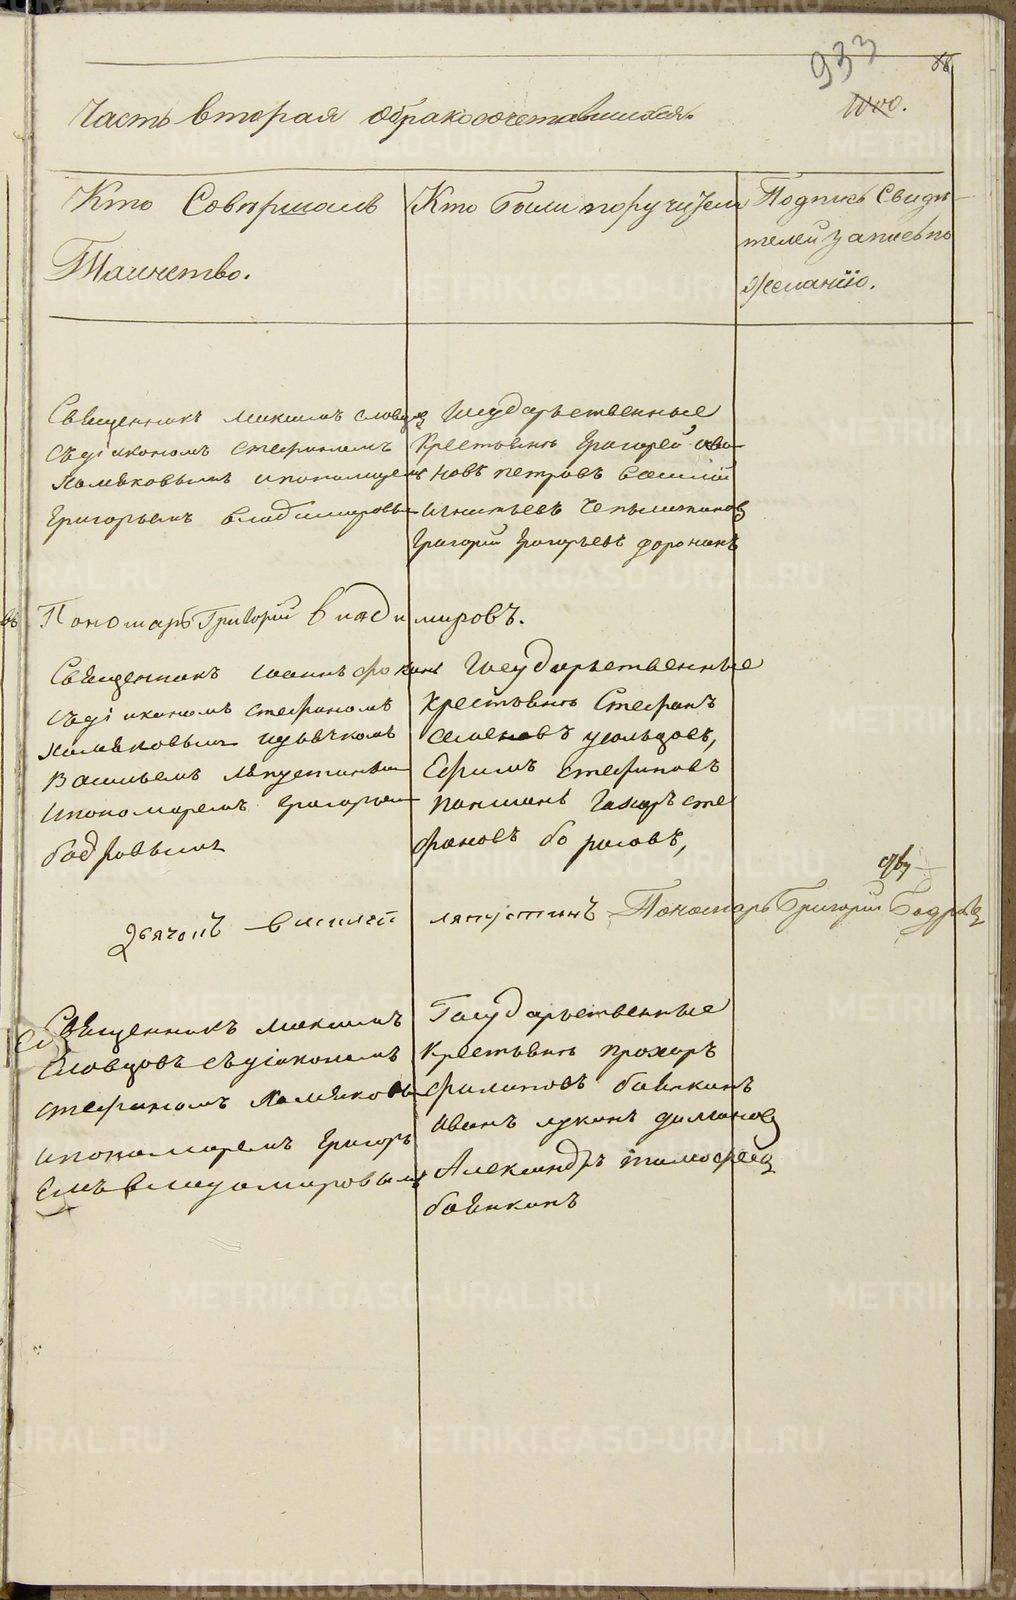 933
Часть вторая о бракосочетавшихся.
Кто Совершалъ
Таинство.
Кто были поручители
Подпись свидѣ-
телей записи по
желанію.
Священникъ Максимъ Словцов
съ діакономъ Стефаномъ
Хомяковымъ и пономаремъ
Григорьемъ Владимировым
Государственные
крестьяне Григорей Ива-
новъ Петровъ Василій
Игнатьевъ
Григорій Григорьевъ Доронинъ
Пономарь Григорій Владимировъ.
Священникъ Іоаннъ Фокинъ
съ діакономъ Стефаномъ
Хомяковымъ и дьячкомъ
Васильемъ Ляпустиным
и пономаремъ Григорьем
Бодровымъ
Государственные
крестьяне Стефанъ
Семеновъ Усольцовъ,
Ефимъ Стефановъ
Паншинъ Захаръ Сте
фановъ Боросовъ,
Дьячокъ Василей Ляпустинъ Пономарь Григорій Бодров
Священникъ Максимъ
Словцовъ съ діакономъ
Стефаномъ Хомяковым
и пономаремъ Григорь
емъ Владимировымъ
Государственные
крестьяне Прохоръ
Филиповъ Баянкинъ
Иванъ Лукинъ
Александръ Тимофеев
Баянкинъ
METRIKI.GASO-URAL.RU